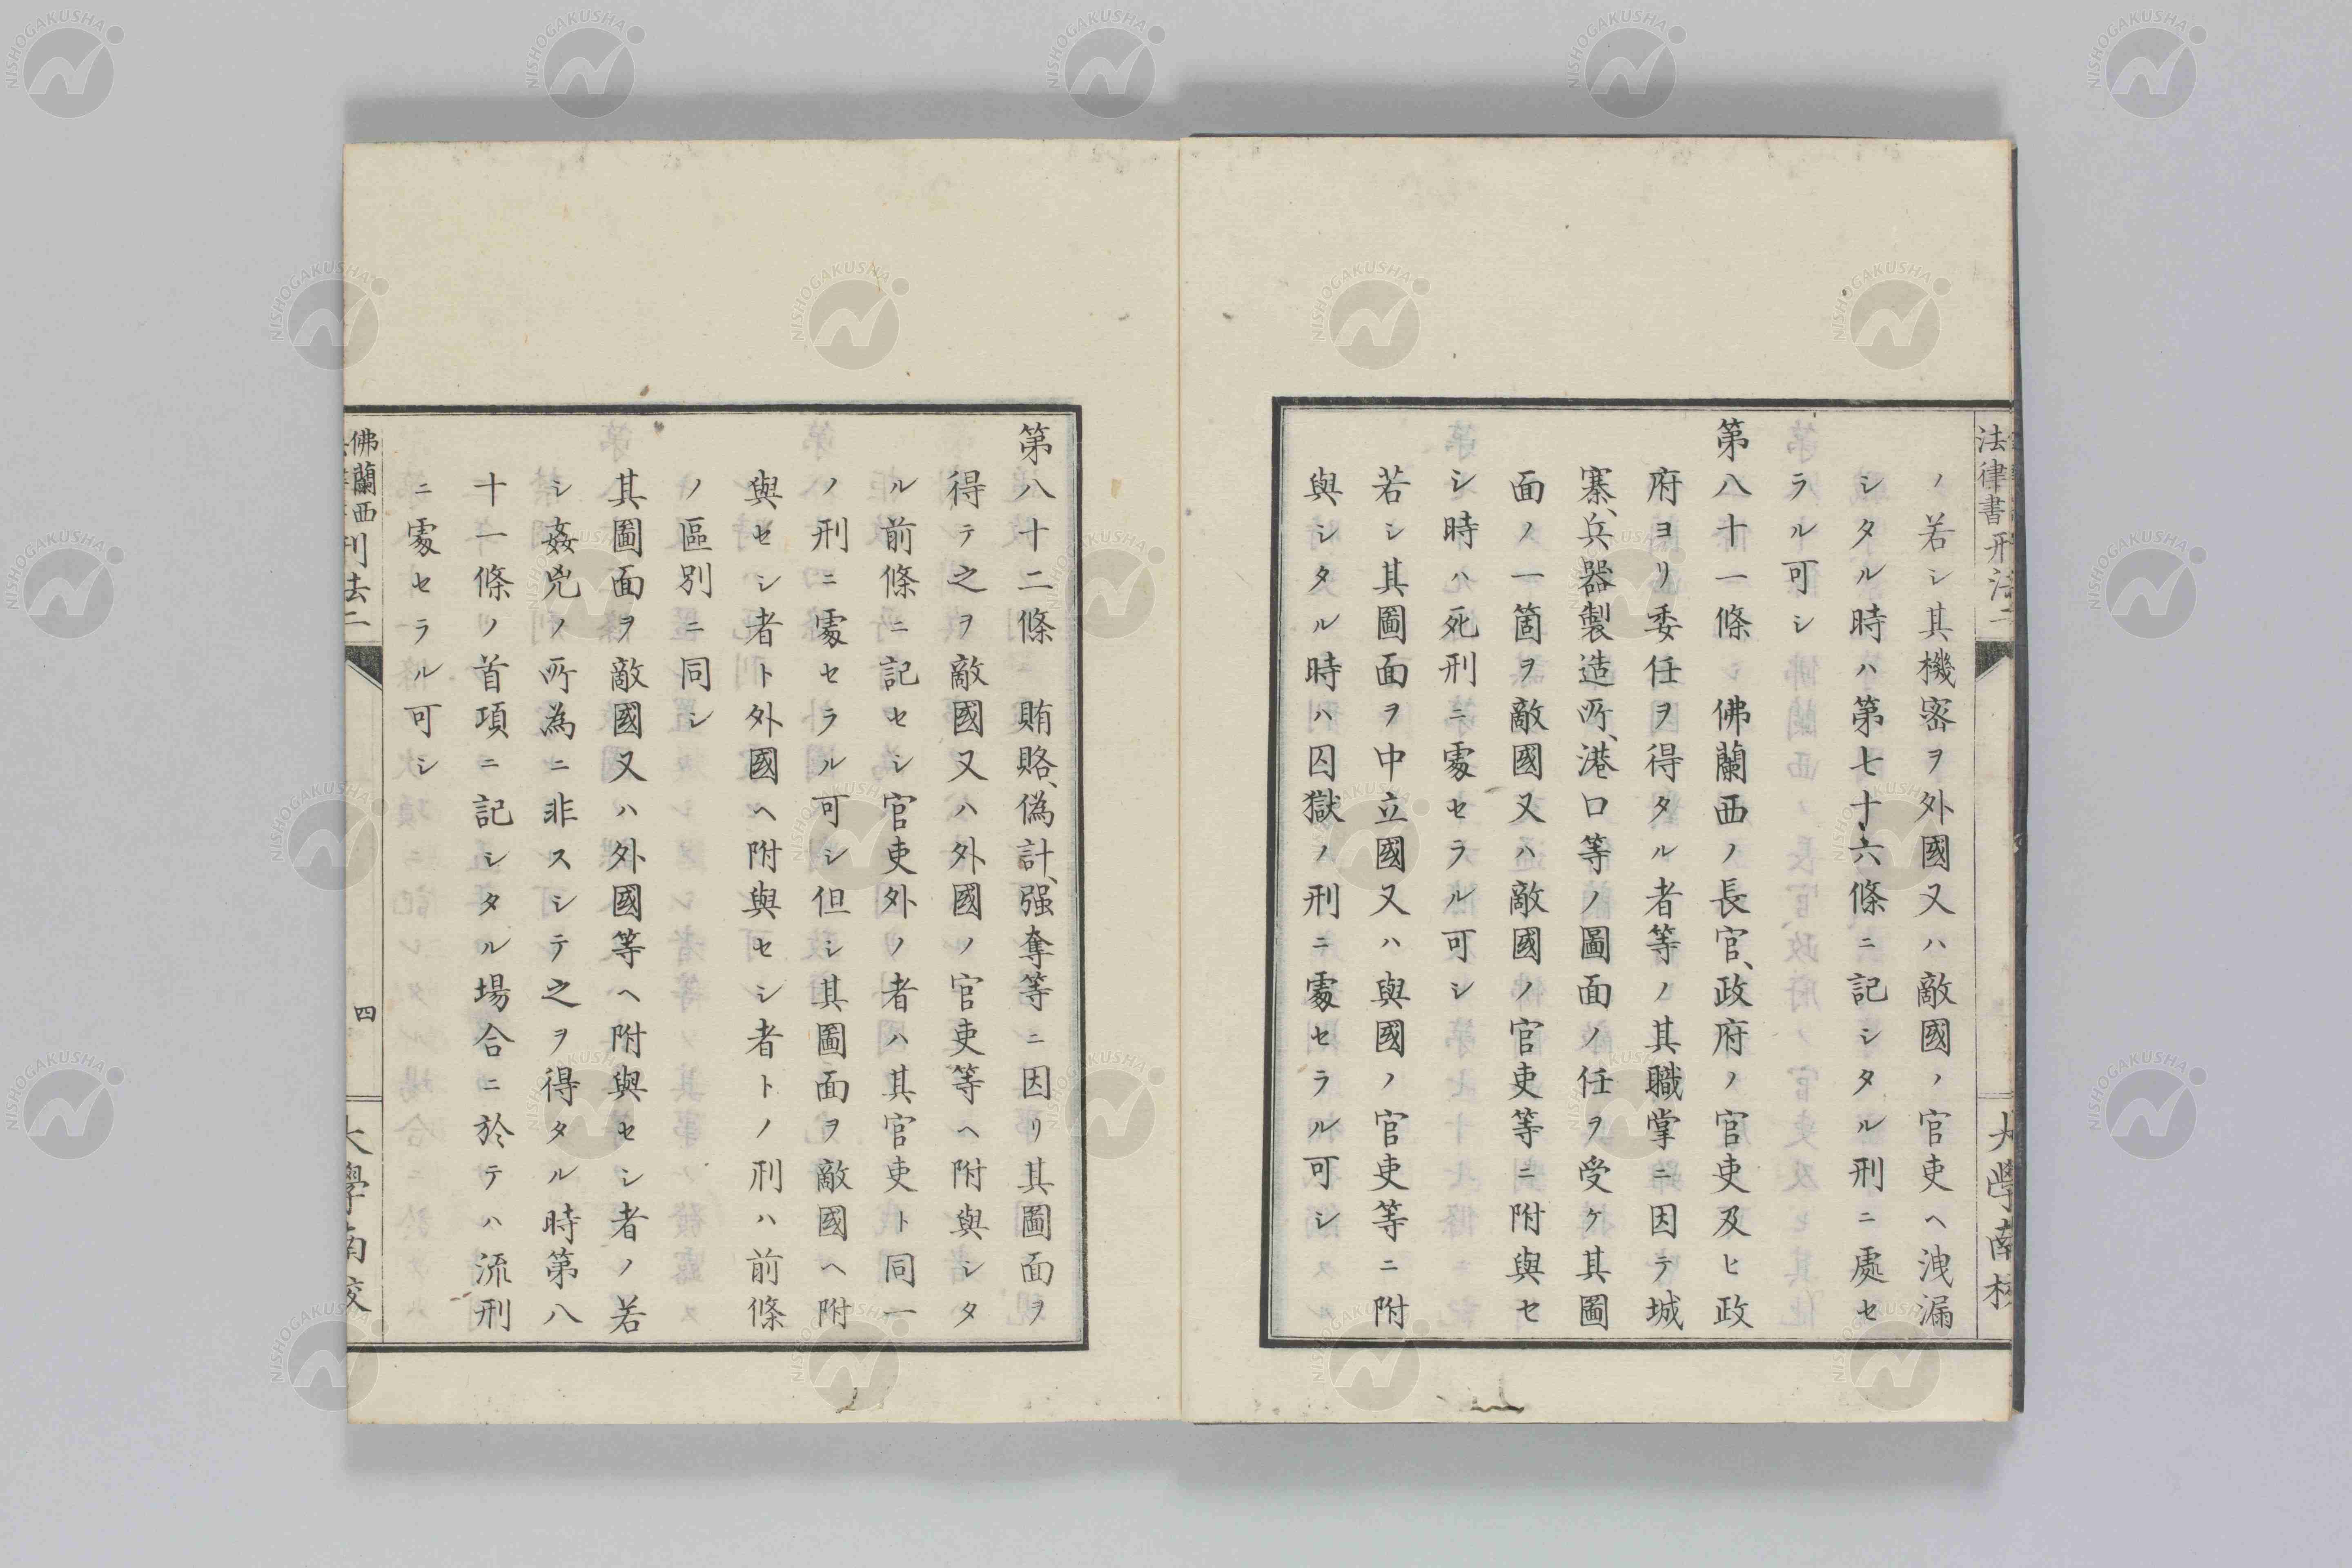 ノ若シ其機密ヲ外國又ハ敵國ノ官吏ヘ洩漏
シタル時ハ第七十六條ニ記シタル刑ニ處セ
ラル可シ
第八十一條　佛蘭西ノ長官、政府ノ官吏及ヒ政
府ヨリ委任ヲ得タル者等ノ其職掌ニ因テ城
寨、兵器製造所、港口等ノ圖面ノ任ヲ受ケ其圖
面ノ一箇ヲ敵國又ハ敵國ノ官吏等ニ附與セ
シ時ハ死刑ニ處セラル可シ
若シ其圖面ヲ中立國又ハ與國ノ官吏等ニ附
與シタル時ハ囚獄ノ刑ニ處セラル可シ
第八十二條　賄賂、偽計、强奪等ニ因リ其圖面ヲ
得テ之ヲ敵國又ハ外國ノ官吏等ヘ附與シタ
ル前條ニ記セシ官吏外ノ者ハ其官吏ト同一
ノ刑ニ處セラル可シ但シ其圖面ヲ敵國ヘ附
與セシ者ト外國ヘ附與セシ者トノ刑ハ前條
ノ區別ニ同シ
其圖面ヲ敵國又ハ外國等ヘ附與セシ者ノ若
シ姦兇ノ所為ニ非スシテ之ヲ得タル時第八
十一條ノ首項ニ記シタル場合ニ於テハ流刑
ニ處セラル可シ
法律書刑法二
大學南校
佛蘭西
刑法二
四
大學南校
NISHOGAKUSHA